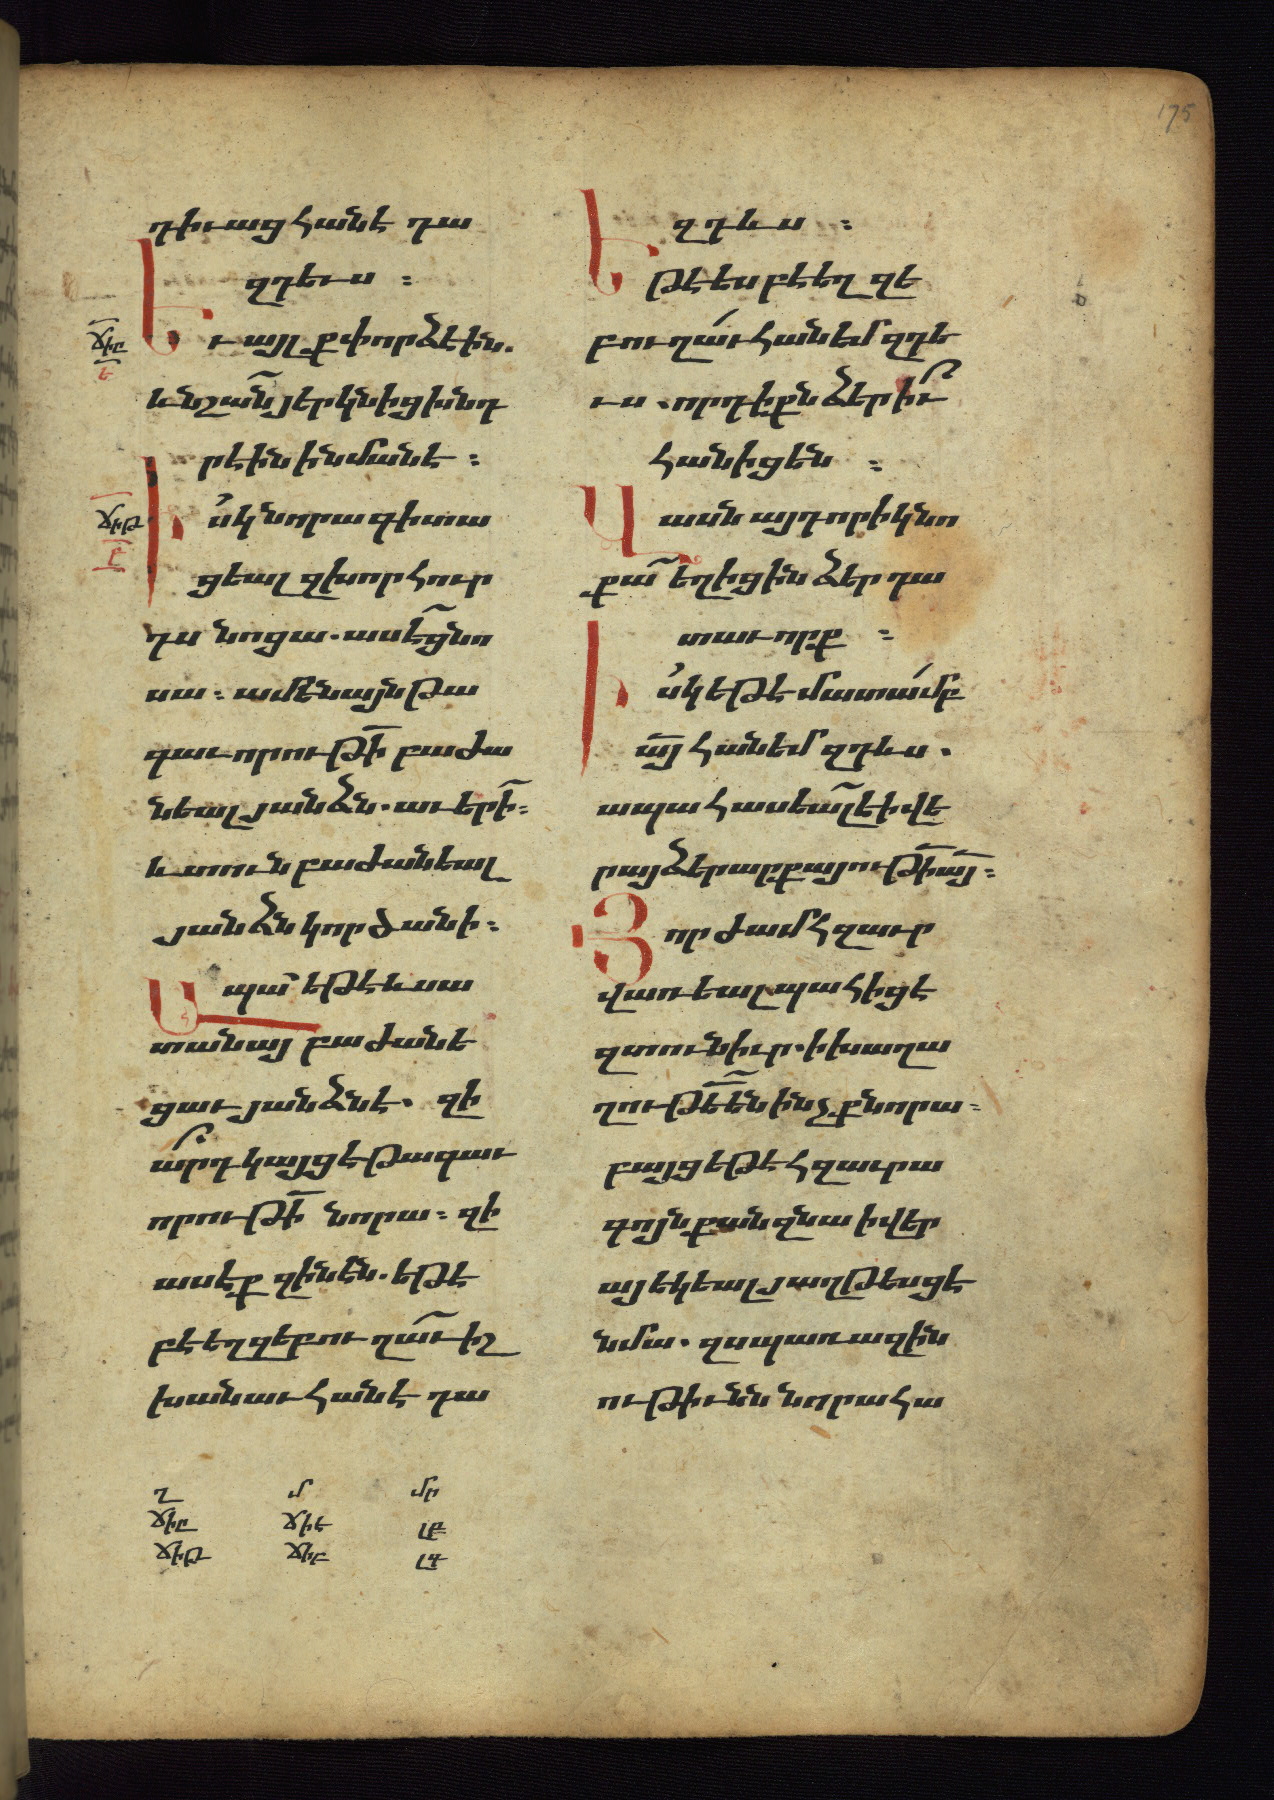 175
դիւաց հանէ դա
զդեւս ։
Եւ այլք փորձէին.
ՃԻԸ
Ե
և նշան յերկնից խնդ
րէին ի նմանէ ։
Իսկ նորա գիտա
ՃԻԹ
Բ
ցեալ զխորհուր
դս նոցա. ասէ ցնո
սա ։ ամենայն թա
գաւորութի բաժա
նեալ յանձն. աւերի ։
և տուն բաժանեալ
յանձն կործանի ։
Ապա եթե և սա
տանայ բաժանե
ցաւ յանձնէ. զի
արդ կայցե թագաւ
որութի նորա ։ զի
ասէք զինէն. եթէ
բէեղզեբուղաւ իշ
խանաւ հանէ դա
զդևս ։
Եթէ ես բէեղզե
բուղաւ հանեմ զդե
ւս. որդիքն ձեր իւ
հանիցեն ։
Վասն այդորիկ նո
քա եղիցին ձեր դա
տաւորք ։
Իսկ եթե մատամբ
այ հանեմ զդևս.
ապա հասեալ է ի վե
րայ ձեր արքայութի այ ։
Յորժամ հզաւր
վառեալ պահիցէ
զտուն իւր. ի խաղա
ղութե են ինչք նորա ։
բայց եթէ հզաւրա
գոյն քան զնա ի վեր
այ եկեալ յաղթեսցէ
նմա. զսպառազին
ութիւնն նորա հա
Ղ Մ ՄՐ
ՃԻԸ ՃԻԵ ԼԲ
ՃԻԹ ՃԻԲ ԼԳ